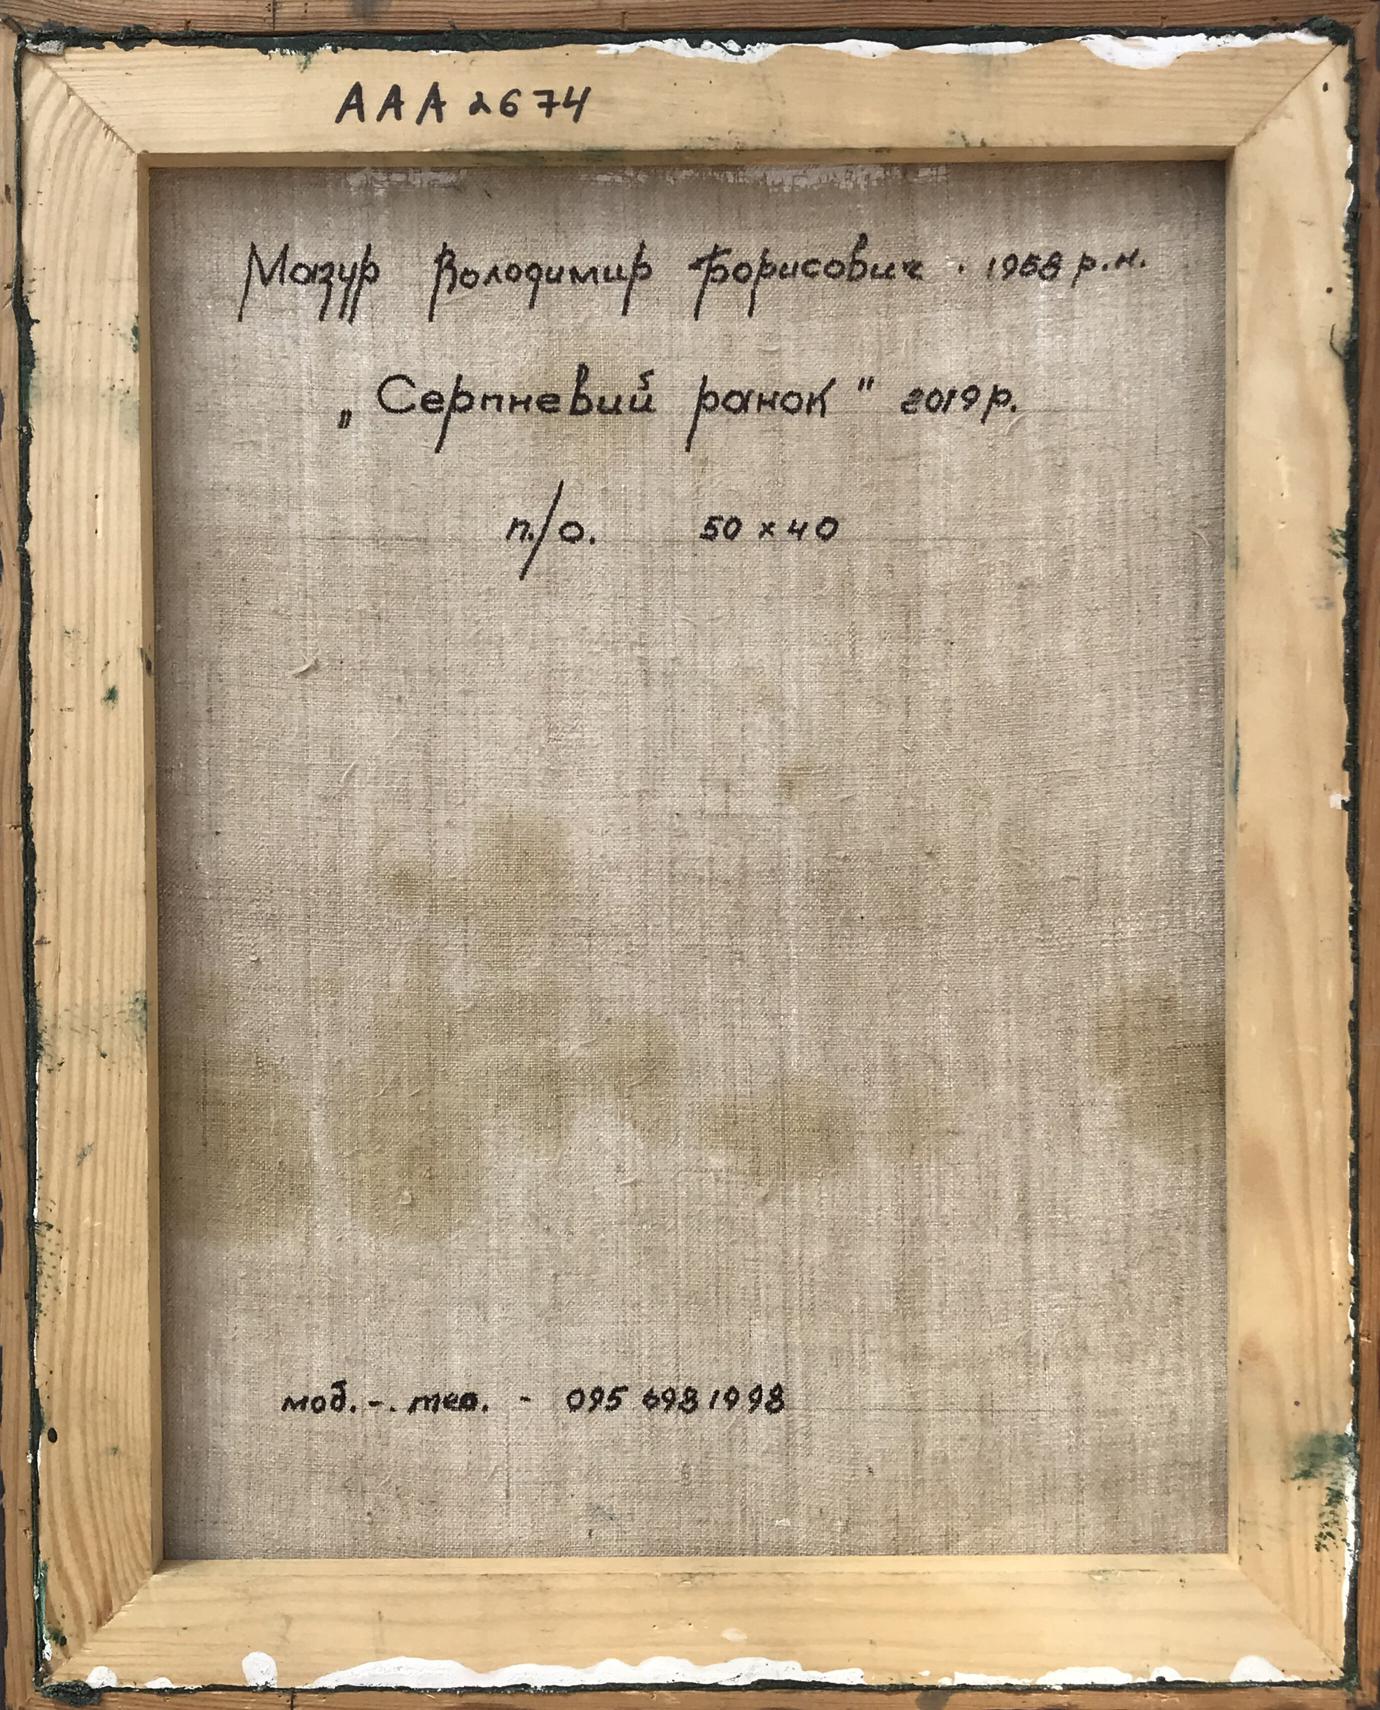 AAA 2674
Мазур Володимир Борисович . 1958 р.н.
„Серпневий ранок" 2019р.
п./о. 50 х 40
моб. -. тел. - 095 6981998